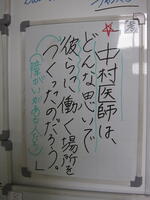 中村医師は、
どんな思いで
彼らに働く場所を
つくったのだろう。」
障がいがある人たち